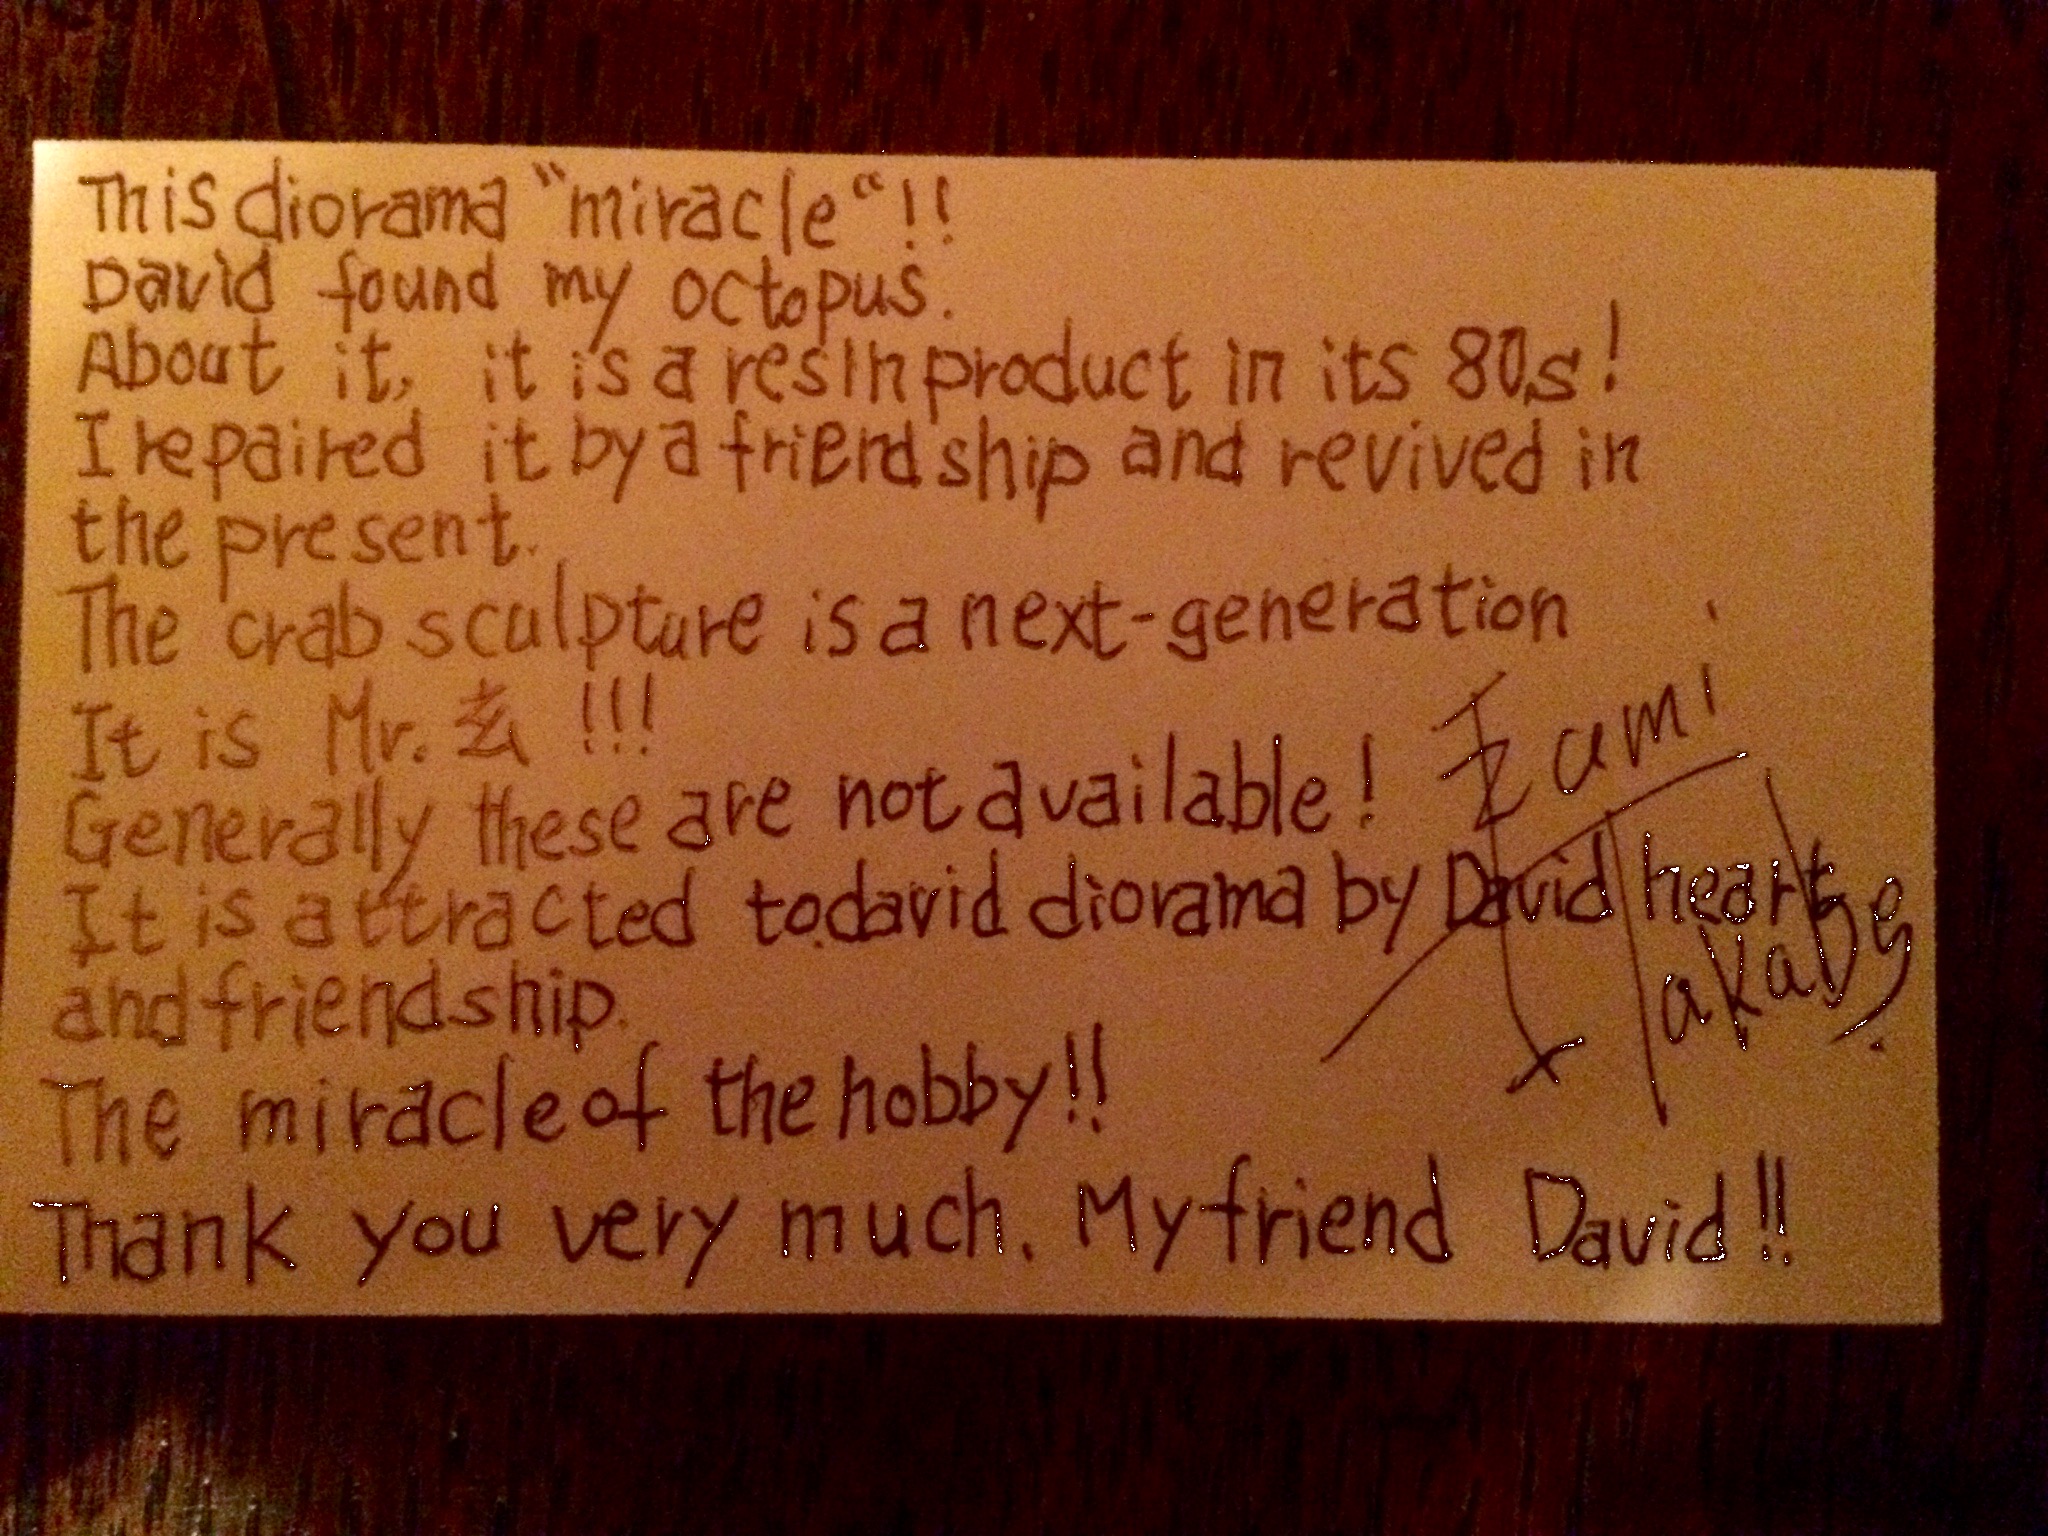 This diorama "miracle"!!
David found my octopus.
About it, it is a resin product in its 80s!
I repaired it by a friendship and revived in
the present.
The crab sculpture is a next-generation
It is Mr. 玄 !!!
Generally these are not available!
It is attracted to david diorama by David heart
and friendship.
The miracle of the hobby!!
Thank you very much. My friend David!!
Izumi
Takabe